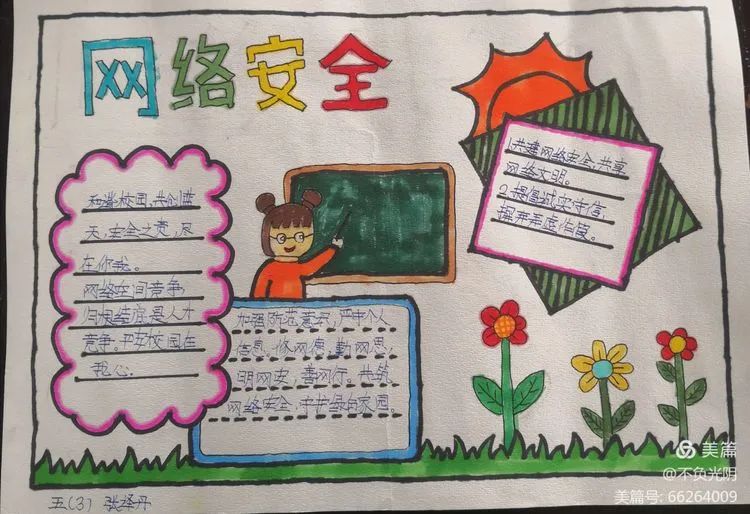 网络安全
和谐校园,共创蓝
天,安全之责,尽
在你我。
网络空间竞争,
归根结底是人才
竞争。平安校园在
我心。
加强防范意识,严守个人
信息。修网德,勤网思,
明网安,善网行。共筑
网络安全,守护绿色家园。
1.共建网络安全,共享
网络文明。
2.提倡诚实守信,
摒弃弄虚作假。
五(3) 张泽丹
美篇
@不负光阴
美篇号: 66264009